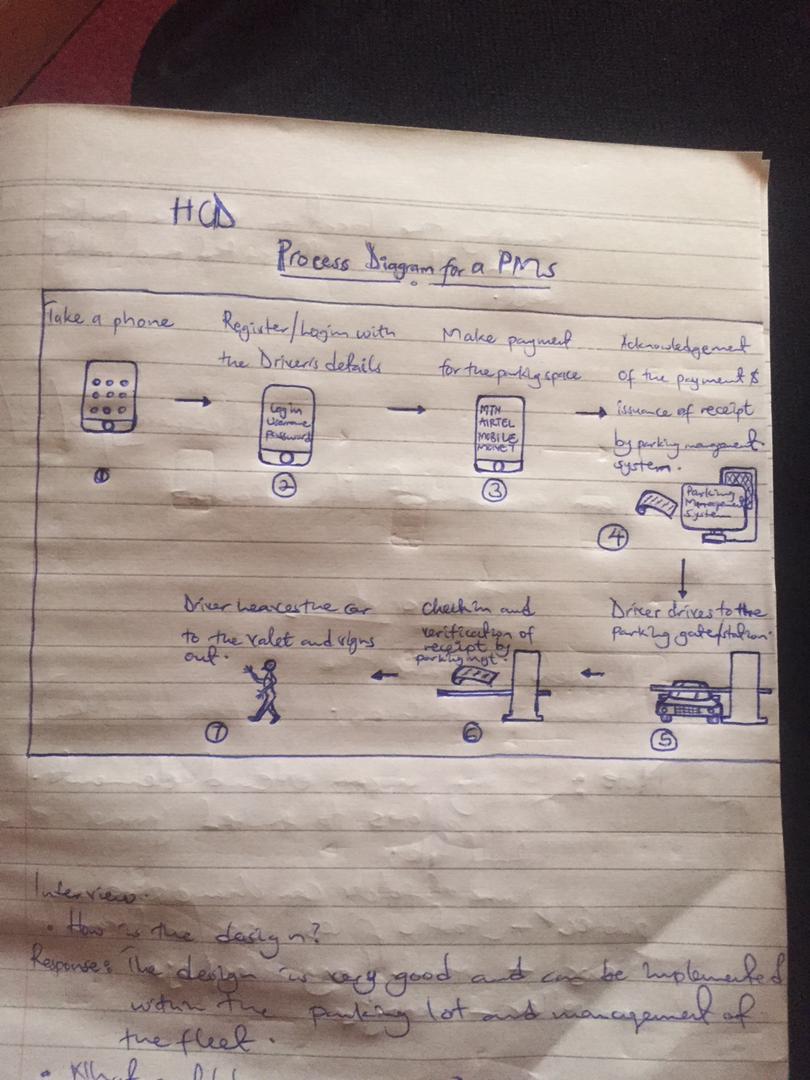 HCD
Process Diagram for a PMS
Take a phone
Register/Login with
the Driver's details
Login
Username
Password
②
Make payment
for the parking space
MTN
AIRTEL
MOBILE
MONEY
③
Acknowledgement
of the payment &
issuance of receipt
by parking management
system.
Parking
Management
System
④
①
Driver drives to the
parking gate/station.
⑤
Check in and
verification of
receipt by
parking mgt.
⑥
Driver leaves the car
to the valet and signs
out.
⑦
Interview.
• How is the design?
Response: The design is very good and can be implemented
within the parking lot and management of
the fleet.
• What